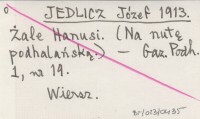 JEDLICZ Józef 1913.
Żale Hanusi. (Na nutę
podhalańską.) — Gaz. Podh.
1, nr 19.
Wiersz.